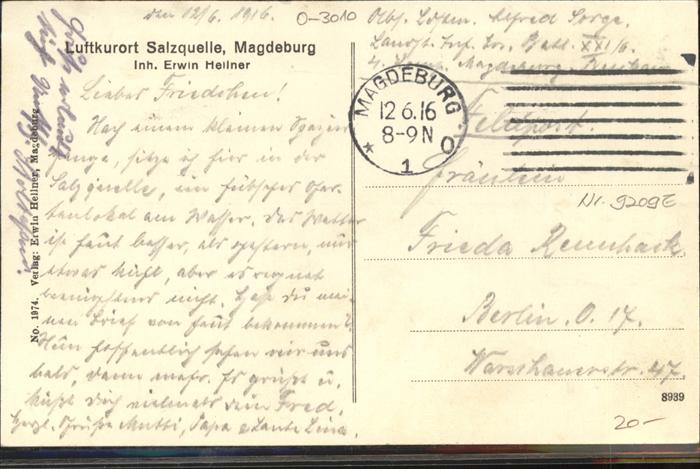 den 12/6. 1916.
O-3010
Luftkurort Salzquelle, Magdeburg
Inh. Erwin Hellner
Liebes Friedchen!
Nach einem kleinen Spazier
gange, sitze ich hier in der
Salzquelle, ein hübsches Gar-
tenlokal am Wasser. Das Wetter
ist heut besser, als gestern, nur
etwas kühl, aber es regnet
wenigstens nicht. Hast Du mei-
nen Brief von heut bekommen?
Nun hoffentlich sehen wir uns
bald, dann mehr. Es grüßt u.
küßt Dich vielmals dein Fred.
Herzl. Grüße Mutti, Papa u Tante Lina.
No. 1974. Verlag: Erwin Hellner, Magdeburg
Abs. Alfred Sorge,
Landst. Inf. Ers. Batl. XXI/6.
Magdeburg
MAGDEBURG
12 6.16
8-9 N
* 1 O
Feldpost.
Fräulein
Nr. 9209E
Frieda Rennhack.
Berlin. O. 17.
Warschauerstr. 47.
8939
20-